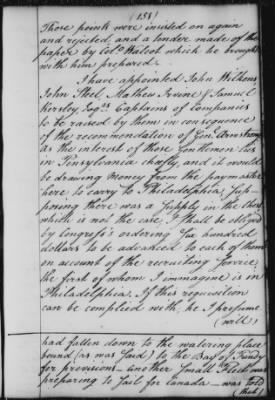 (151)
Those points were insisted on again
and rejected, and a tender made of the
paper by Colo. Walcot which he brought
with him prepared.
I have appointed John Wilkins
John Steel, Mathew Irvine & Samuel
Kersley, Esqrs. Captains of companies
to be raised by them in consequence
of the recommendation of Genl. Armstrong
as the interest of those Gentlemen lies
in Pensylvania chiefly, and it would
be drawing money from the paymaster
here to carry to Philadelphia, Sup-
posing there was a Supply in the Chest
which is not the case, I shall be obliged
by Congress's ordering Six hundred
dollars to be advanced to each of them
on account of the recruiting Service,
the first of whom I immagine is in
Philadelphia. If this requisition
can be complied with, he I presume
(will)
had fallen down to the watering place
bound (as was said) to the Bay of Fundy
for provisions – another Small Fleet was
preparing to Sail for Canada – was told
(that)